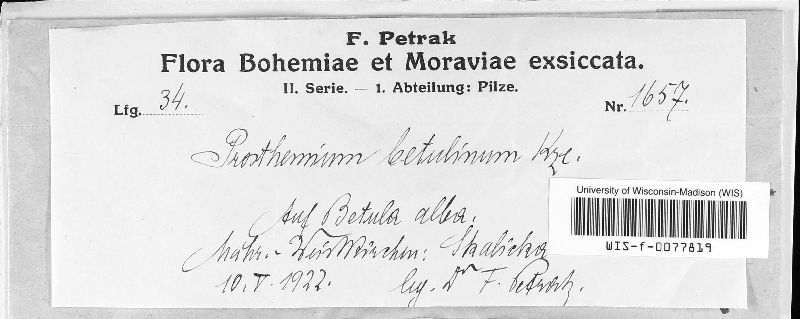 F. Petrak
Flora Bohemiae et Moraviae exsiccata.
II. Serie. — 1. Abteilung: Pilze.
Lfg. 34.
Nr. 1657.
Prosthemium betulinum Kze.
University of Wisconsin-Madison (WIS)
WIS-f-0077819
Auf Betula alba.
Mähr.-Weisskirchen: Skalicka
10.V.1922. leg. Dr F. Petrak.